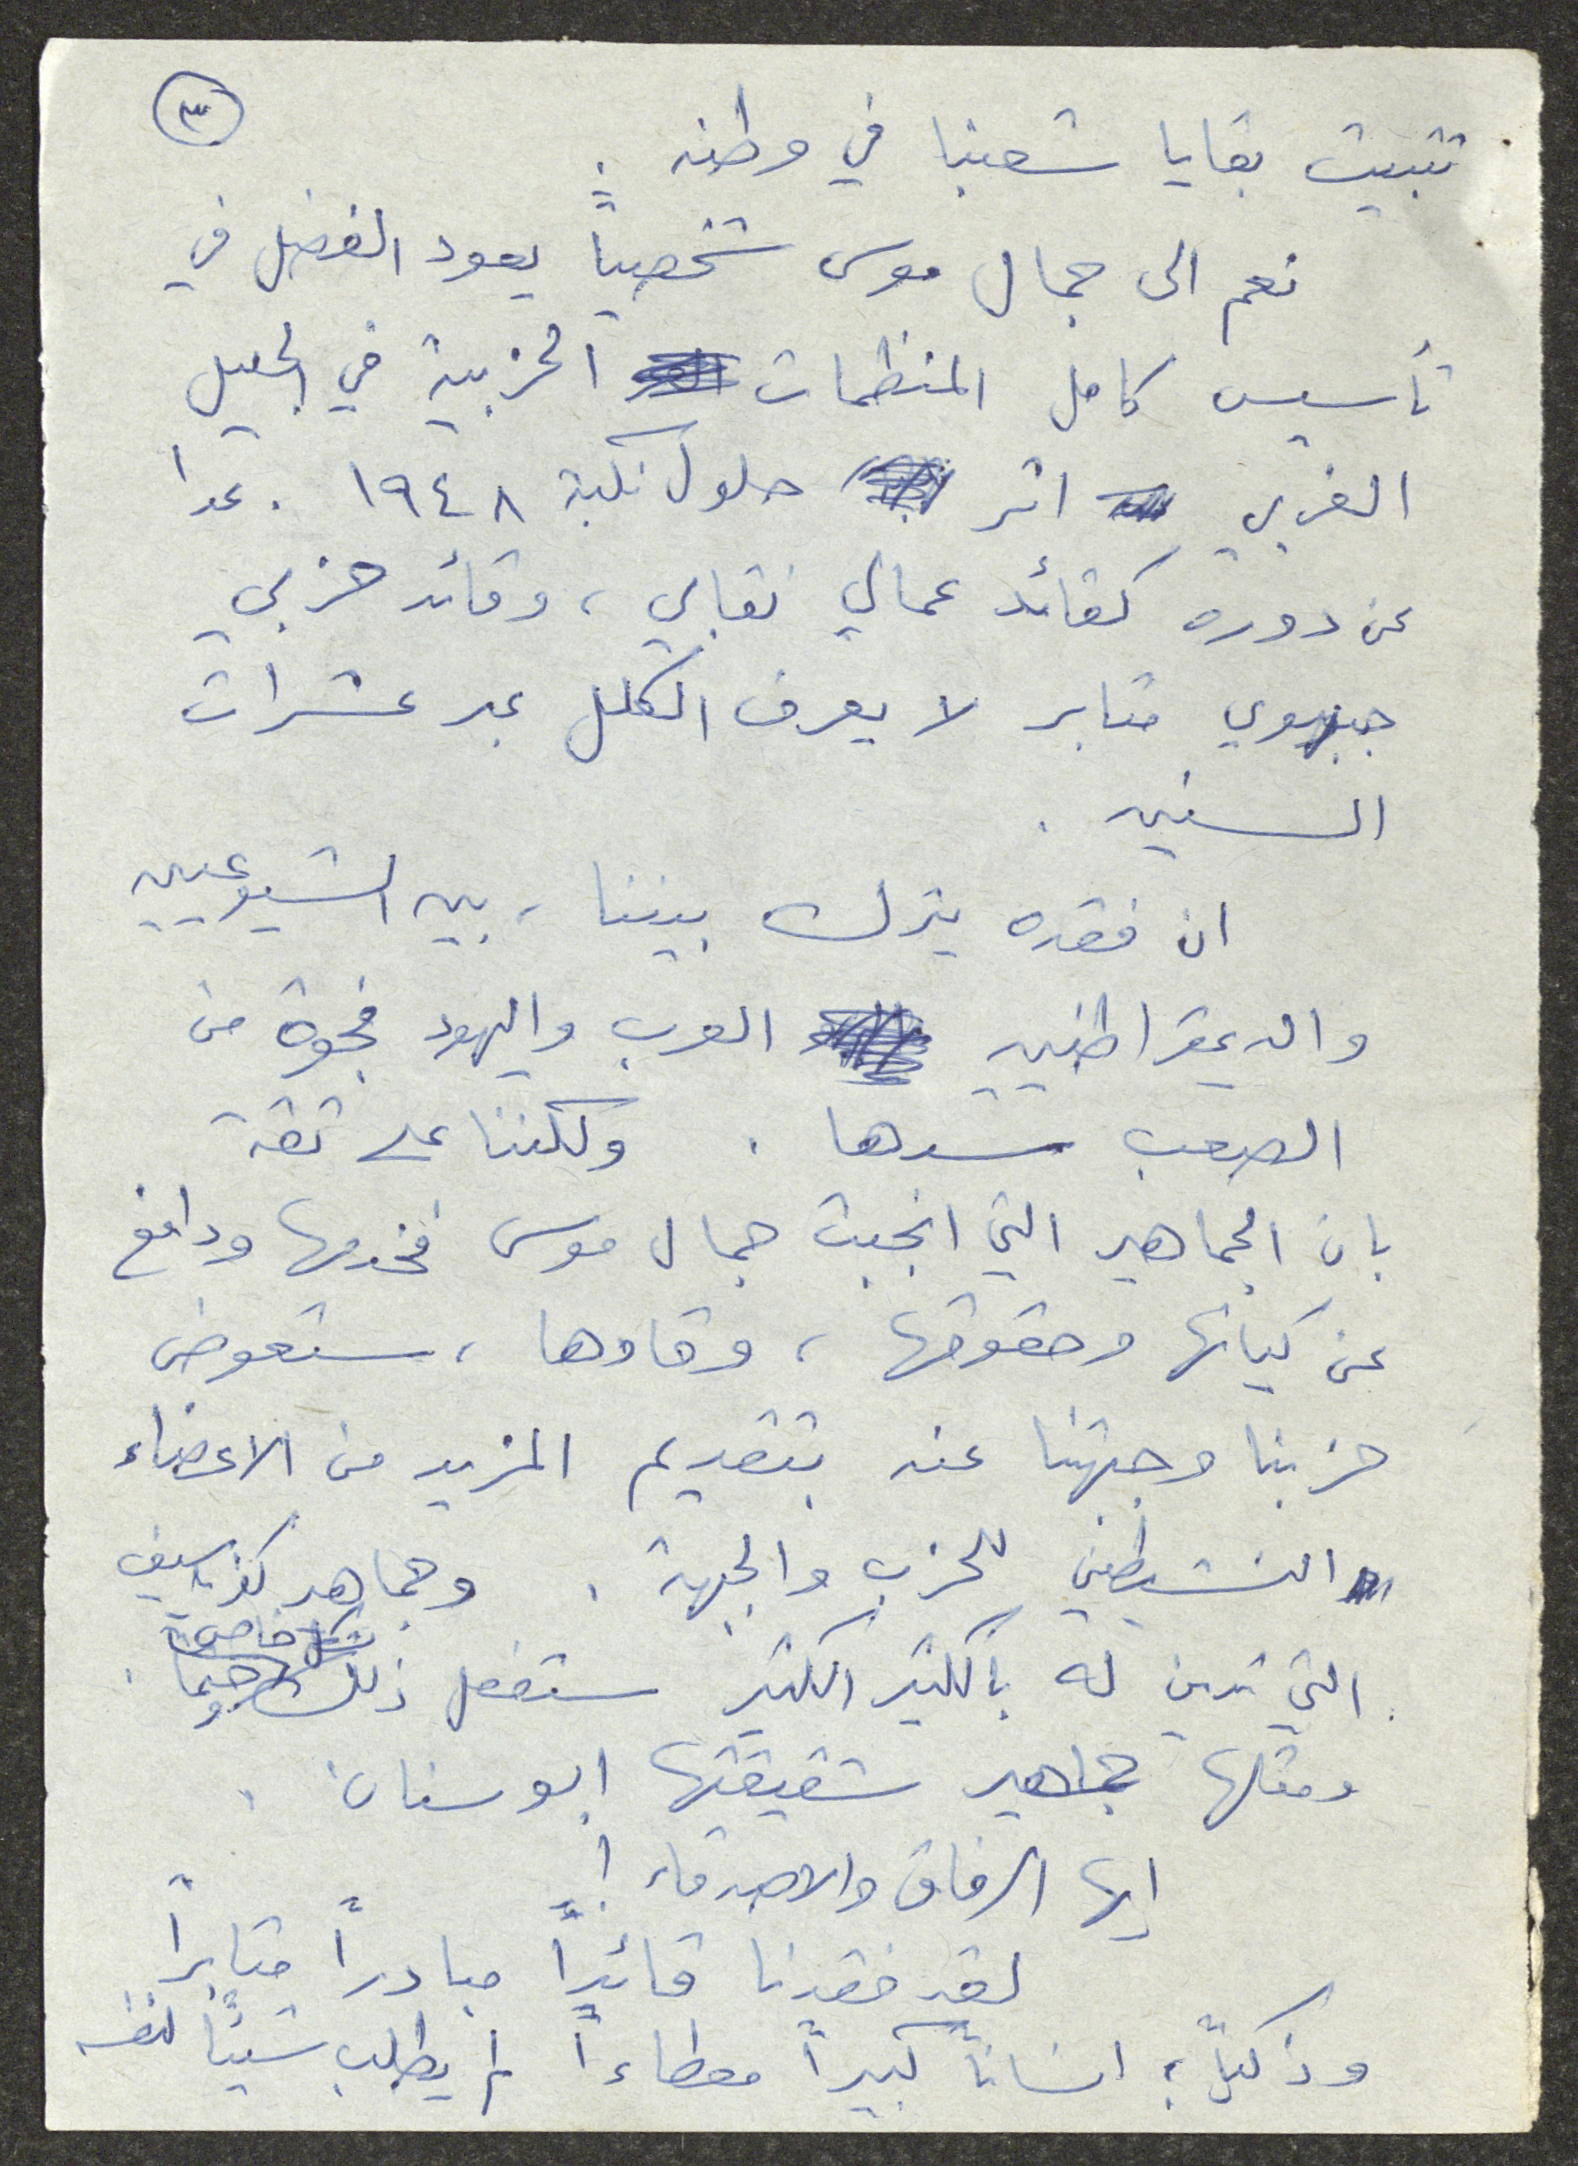 ٣
تثبيت بقايا شعبنا في وطنه .
نعم الى جمال موسى شخصياً يعود الفضل في
تأسيس كامل المنظمات الحزبية في الجليل
الغربي اثر حلول نكبة ١٩٤٨ . عدا
عن دوره كقائد عمالي نقابي ، وقائد حزبي
جبهوي مثابر لا يعرف الكلل عبر عشرات
السنين .
ان فقده يترك بيننا ، بين الشيوعيين
والديمقراطيين العرب واليهود فجوة من
الصعب سدها . ولكننا على ثقة
بان الجماهير التي انجبت جمال موسى فخدمها ودافع
عن كيانها وحقوقها ، وقادها ، ستعوض
حزبنا وجبهتنا عنه بتقديم المزيد من الاعضاء
النشيطين للحزب والجبهة . وجماهير كفرياسيف
التي تدين له بالكثير الكثير ستفعل ذلك حتماً .
ومثلها جماهير شقيقتها ابو سنان .
ايها الرفاق والاصدقاء !
لقد فقدنا قائداً مبادراً مثابراً
وذكياً ؛ انساناً كبيراً معطاءاً لم يطلب شيئاً لنفسه